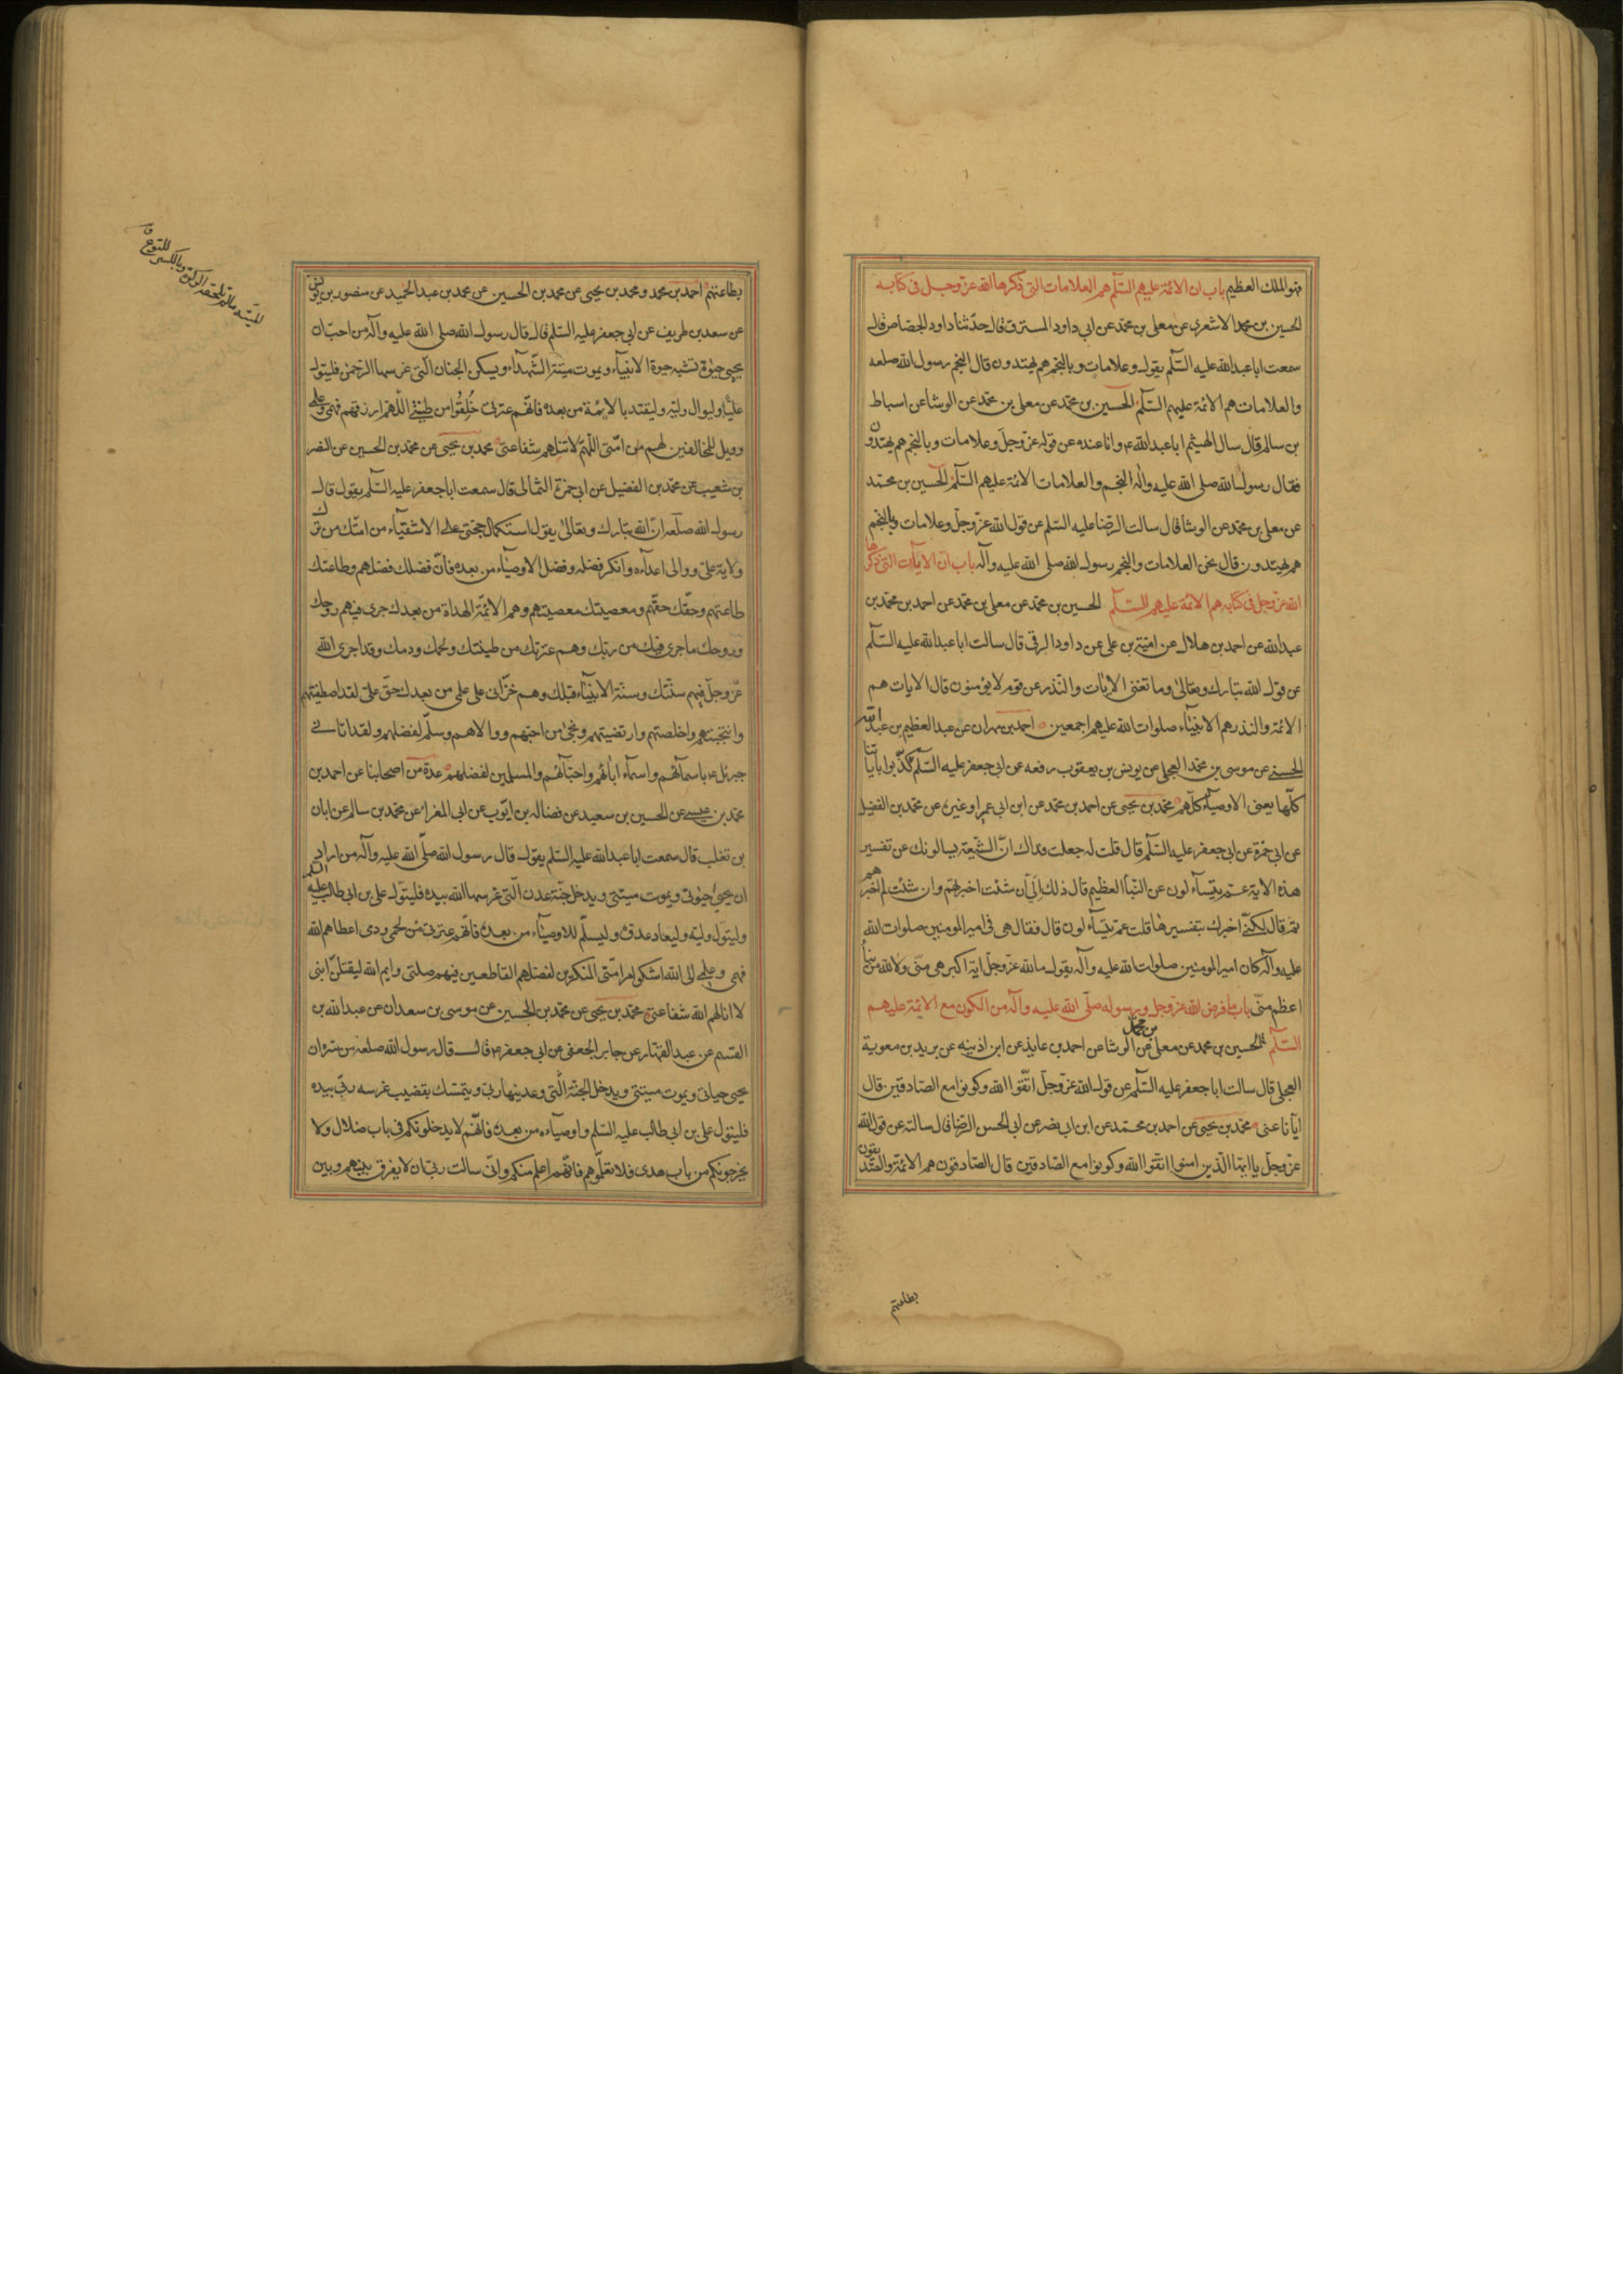 فهو الملك العظيم باب ان الائمة عليهم السلم هم العلامات التى ذكرها الله عز وجل فى كتابه
الحسين بن محمد الاشعرى عن معلى بن محمد عن ابى داود المسترق قال حدثنا داود الجصاص قال
سمعت ابا عبدالله عليه السلم يقول وعلامات وبالنجم هم يهتدون قال النجم رسول الله صلعه
والعلامات هم الائمة عليهم السلم الحسين بن محمد عن معلى بن محمد عن الوشا عن اسباط
بن سالم قال سال الهيثم ابا عبدالله ع وانا عنده عن قوله عز وجل وعلامات وبالنجم هم يهتدون
فقال رسول الله صلى الله عليه واله النجم والعلامات الائمة عليهم السلم الحسين بن محمد
عن معلى بن محمد عن الوشا قال سالت الرضا عليه السلم عن قول الله عز وجل وعلامات وبالنجم
هم يهتدون قال نحن العلامات والنجم رسول الله صلى الله عليه وآله باب ان الايات التى ذكرها
الله عز وجل فى كتابه هم الائمة عليهم السلم الحسين بن محمد عن معلى بن محمد عن احمد بن محمد بن
عبدالله عن احمد بن هلال عن امية بن على عن داود الرقى قال سالت ابا عبدالله عليه السلم
عن قول الله تبارك وتعالى وما تغنى الايات والنذر عن قوم لا يؤمنون قال الايات هم
الائمة والنذر هم الانبياء صلوات الله عليهم اجمعين احمد بن مهران عن عبد العظيم بن عبدالله
الحسنى عن موسى بن محمد العجلى عن يونس بن يعقوب رفعه عن ابى جعفر عليه السلم كذبوا باياتنا
كلها يعنى الاوصياء كلهم محمد بن يحيى عن احمد بن محمد عن ابن ابى عمير او غيره عن محمد بن الفضيل
عن ابى حمزة عن ابى جعفر عليه السلم قال قلت له جعلت فداك ان الشيعة يسالونك عن تفسير
هذه الاية عم يتساءلون عن النبأ العظيم قال ذلك الى ان شئت اخبرتهم وان شئت لم اخبرهم
ثم قال لكنى اخبرك بتفسيرها قلت عم يتساءلون قال فقال هى فى امير المومنين صلوات الله
عليه وآله كان امير المومنين صلوات الله عليه وآله يقول ما لله عز وجل اية اكبر هى منى ولا لله من نبأ
اعظم منى باب ما فرض الله عز وجل ورسوله صلى الله عليه وآله من الكون مع الائمة عليهم
السلم الحسين بن محمد عن معلى بن محمد عن الوشا عن احمد بن عايذ عن ابن اذينه عن بريد بن معوية
العجلى قال سالت ابا جعفر عليه السلم عن قول الله عز وجل اتقوا الله وكونوا مع الصادقين قال
ايانا عنى محمد بن يحيى عن احمد بن محمد عن ابن ابى نصر عن ابى الحسن الرضا قال سالته عن قول الله
عز وجل يا ايها الذين امنوا اتقوا الله وكونوا مع الصادقين قال الصادقون هم الائمة والصديقون
بطاعتهم
بطاعتهم احمد بن محمد ومحمد بن يحيى عن محمد بن الحسين عن محمد بن عبد الحميد عن منصور بن يونس
عن سعد بن طريف عن ابى جعفر عليه السلم قال قال رسول الله صلى الله عليه وآله من احب ان
يحيى حيوة تشبه حيوة الانبياء ويموت ميتة تشبه ميتة الشهداء ويسكن الجنان التى غرسها الرحمن فليتول
عليا وليوال وليه وليقتد بالائمة من بعده فانهم عترتى خلقوا من طينتى اللهم ارزقهم فهمى وعلمى
وويل للمخالفين لهم من امتى اللهم لا تنلهم شفاعتى محمد بن يحيى عن محمد بن الحسين عن النضر
بن شعيب عن محمد بن الفضيل عن ابى حمزة الثمالى قال سمعت ابا جعفر عليه السلم يقول قال
رسول الله صلعه ان الله تبارك وتعالى يقول استكمال حجتى على الاشقياء من امتك من ترك
ولاية على ووالى اعداءه وانكر فضله وفضل الاوصياء من بعده فان فضلك فضلهم وطاعتك
طاعتهم وحقك حقهم ومعصيتك معصيتهم وهم الائمة الهداة من بعدك جرى فيهم روحك
وروحك ما جرى فيك من ربك وهم عترتك من طينتك ولحمك ودمك وقد اجرى الله
عز وجل فيهم سنتك وسنة الانبياء قبلك وهم خزانى على علمى من بعدك حق على لقد اصطفيتهم
وانتجبتهم واخلصتهم وارتضيتهم ونجى من احبهم ووالاهم وسلم لفضلهم ولقد اتانى
جبرئل ع باسمائهم واسماء ابائهم واحبائهم والمسلمين لفضلهم عدة من اصحابنا عن احمد بن
محمد بن عيسى عن الحسين بن سعيد عن فضالة بن ايوب عن ابى المغرا عن محمد بن سالم عن ابان
بن تغلب قال سمعت ابا عبدالله عليه السلم يقول قال رسول الله صلى الله عليه وآله من اراد
ان يحيى حيوتى ويموت ميتتى ويدخل جنة عدن التى غرسها الله بيده فليتول على بن ابى طالب عليه السلم
وليتول وليه وليعاد عدوه وليسلم للاوصياء من بعده فانهم عترتى من لحمى ودمى اعطاهم الله
فهمى وعلمى الى الله اشكو امر امتى المنكرين لفضلهم القاطعين فيهم صلتى وايم الله ليقتلن ابنى
لا انالهم الله شفاعتى محمد بن يحيى عن محمد بن الحسين عن موسى بن سعدان عن عبدالله بن
القسم عن عبد القهار عن جابر الجعفى عن ابى جعفر ع قال قال رسول الله صلعه من سره ان
يحيى حياتى ويموت ميتتى ويدخل الجنة التى وعدنيها ربى ويتمسك بقضيب غرسه ربى بيده
فليتول على بن ابى طالب عليه السلم واوصياءه من بعده فانهم لا يدخلونكم فى باب ضلال ولا
يخرجونكم من باب هدى فلا تعلموهم فانهم اعلم منكم وانى سالت ربى ان لا يفرق بينهم وبين